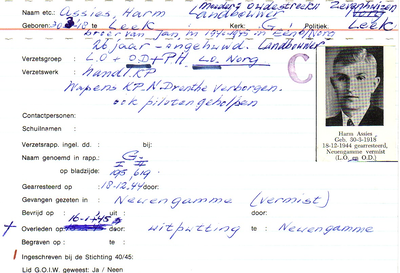 Naam etc.: Assies, Harm Landbouwer Zevenhuizen
Geboren: 30-3-18 te: Leek Kerk: G. Politiek: Leek
broer van Jan, in 1940-1945 in Een of Norg
26 jaar - ongehuwd. Landbouwer
Verzetsgroep : L.O + O.D + P.H. L.O. Norg
Verzetswerk : Handl. KP.
Wapens KP. N. Drenthe Verborgen.
ook piloten geholpen
C
Contactpersonen:
Schuilnamen :
Harm Assies
Geb. 30-3-1918
18-12-1944 gearresteerd,
Neuengamme vermist
(L.O. en O.D.)
Verzetsrapp. ingel. dd. : bij:
Naam genoemd in rapp.: G- I II
op bladzijde: 195, 619
Gearresteerd op : 18-12-44 door:
Gevangen gezeten in : Neuengamme (vermist)
Bevrijd op : uit : door:
16-1-45
+ Overleden op : door: uitputting te : Neuengamme
Begraven op : te :
Ingeschreven bij de Stichting 40/45:
Lid G.O.I.W. geweest: Ja / Neen